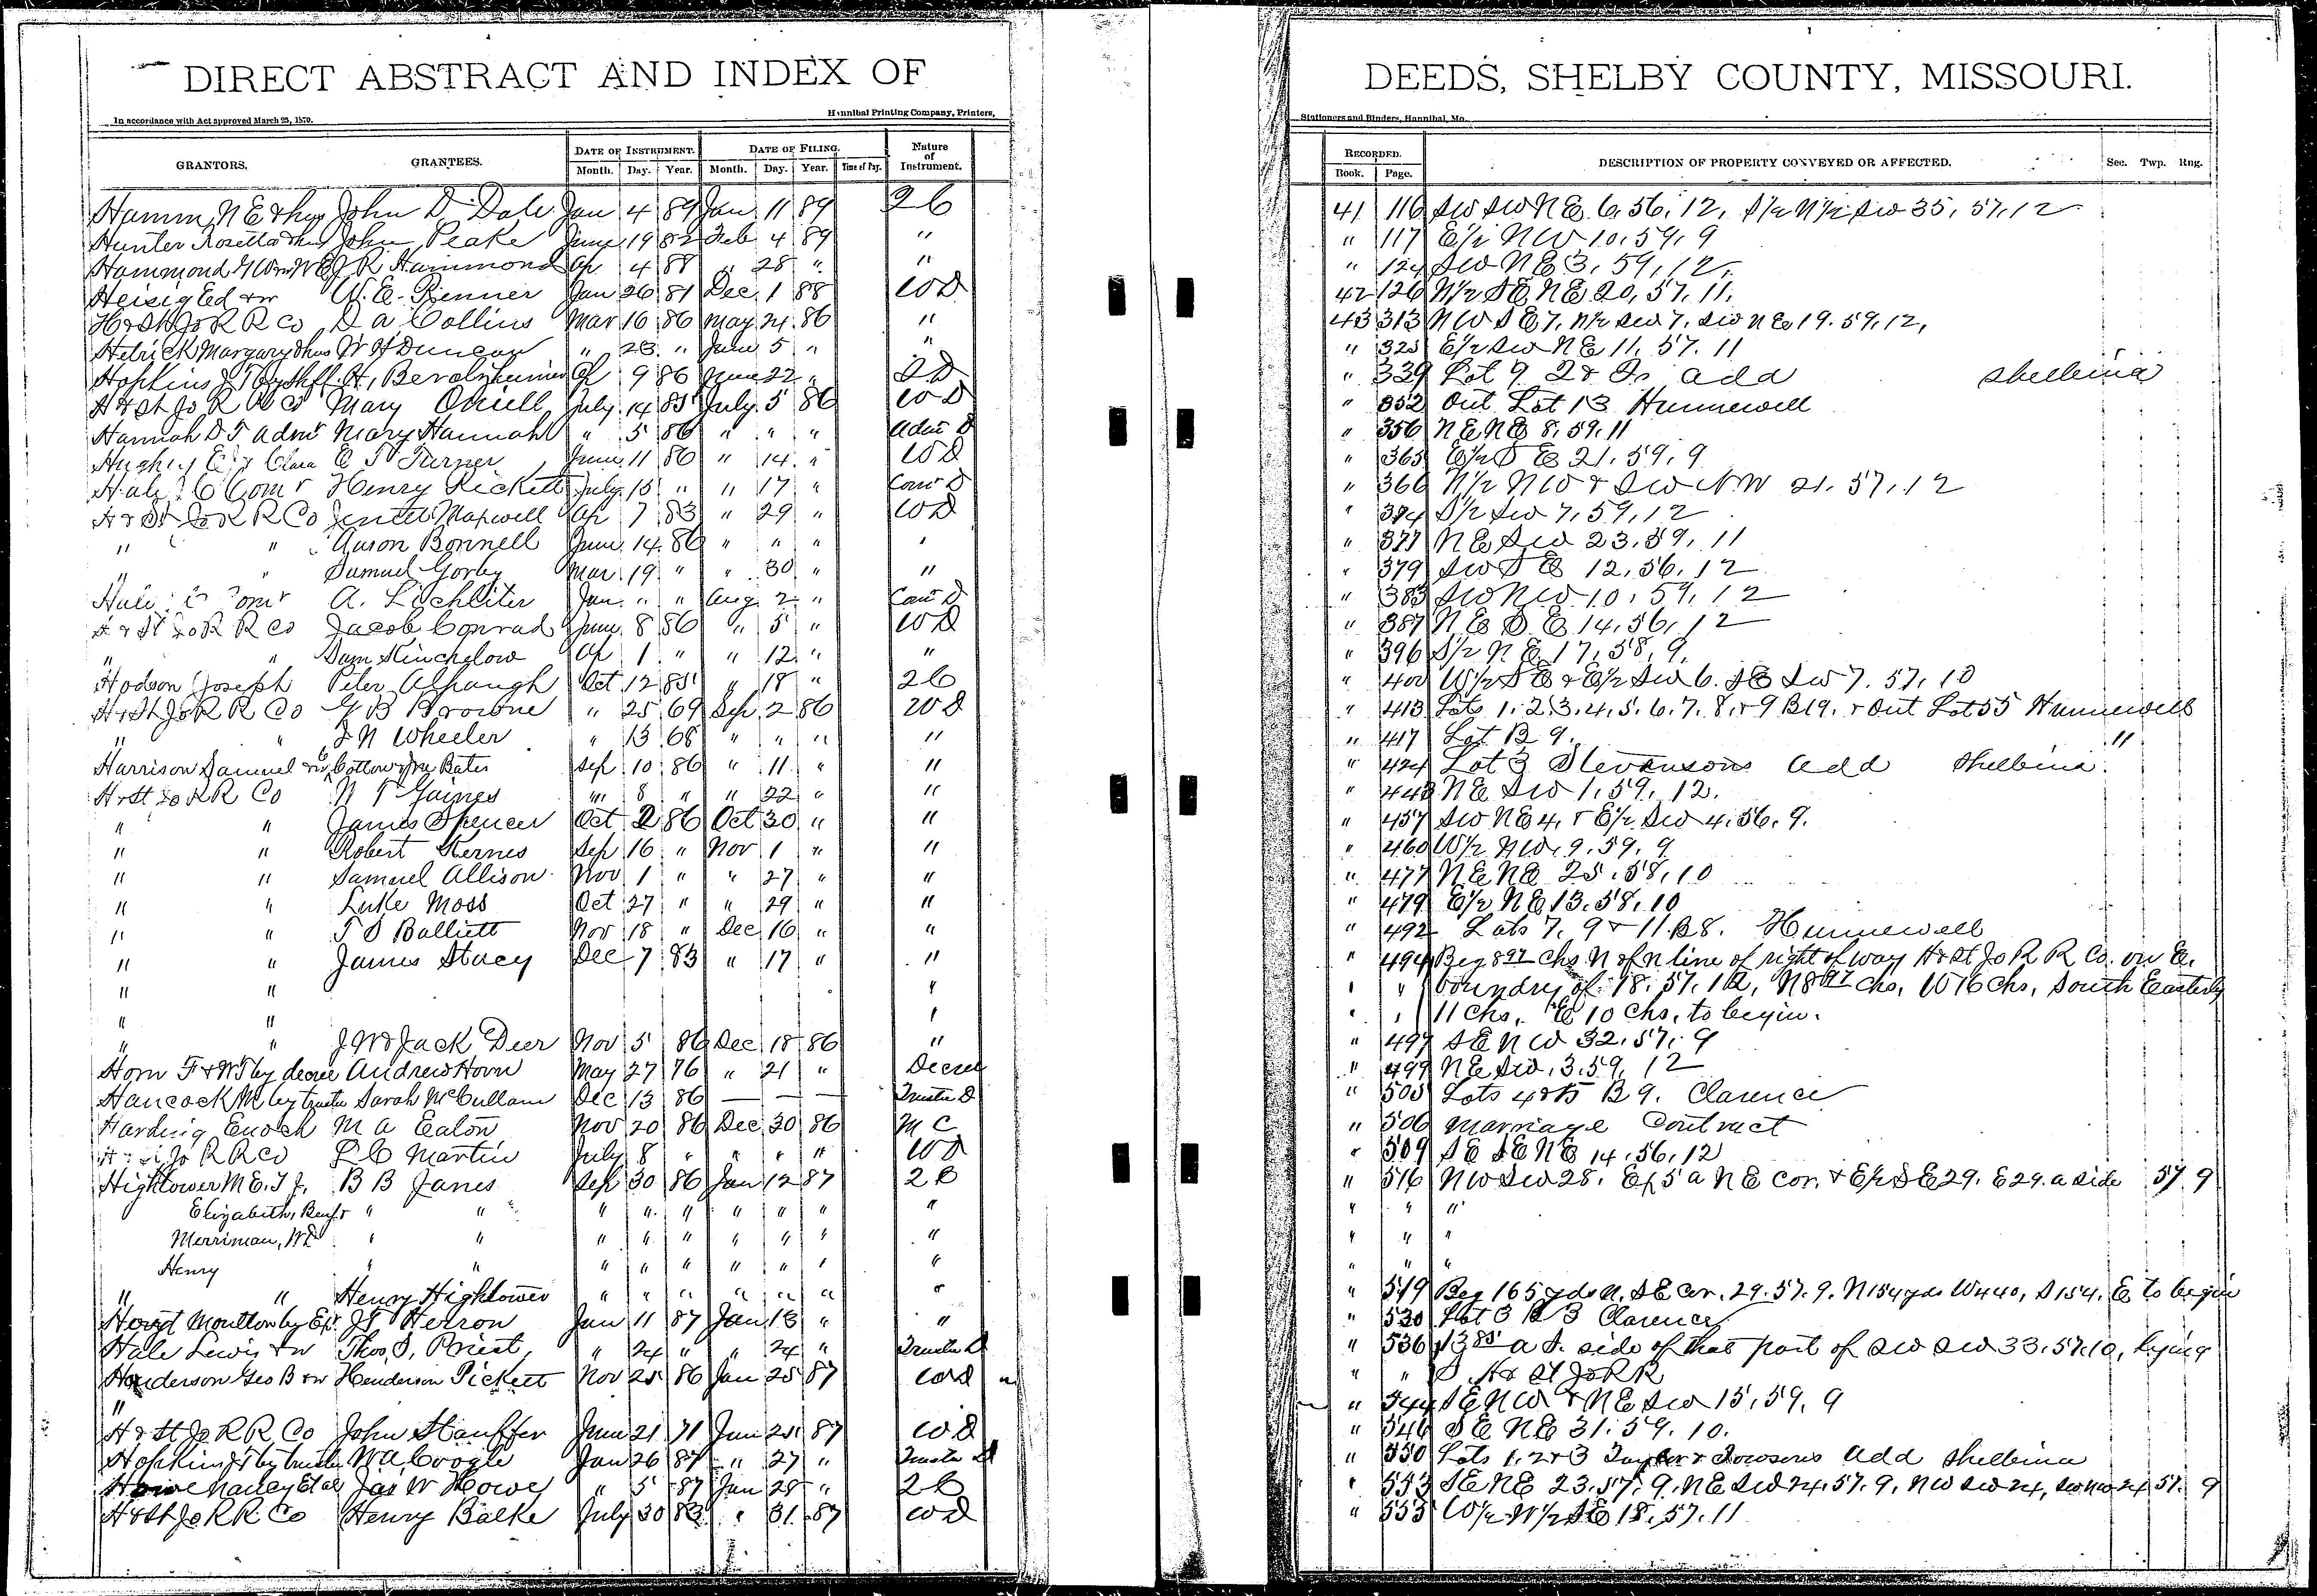 DIRECT ABSTRACT AND INDEX OF DEEDS, SHELBY COUNTY, MISSOURI.
In accordance with Act approved March 25, 1870. Hannibal Printing Company, Printers, Stationers and Binders, Hannibal, Mo.
GRANTORS. GRANTEES. DATE OF INSTRUMENT. DATE OF FILING. Nature of Instrument. RECORDED. DESCRIPTION OF PROPERTY CONVEYED OR AFFECTED. Sec. Twp. Rng.
Month. Day. Year. Month. Day. Year. Time of Day. Book. Page.
Hamm, N E & hus John D. Dale Jan 4 89 Jan 11 89 2 C 41 116 SW SW NE 6, 56, 12, S1/2 N1/2 SW 35, 57, 12
Hunter Rosetta & hus John Peake June 19 82 Feb 4 89 " " 117 E1/2 NW 10, 59, 9
Hammond J R Hammond Ap 4 88 " 28 " " " 124 SW NE 3, 59, 12,
Heisig Ed & w W. E. Renner Jan 26 81 Dec 1 88 W D 42 126 N1/2 SE NE 20, 57, 11,
H & St Jo R R Co D A Collins Mar 16 86 May 24 86 " 43 313 NW SE 7, N1/2 SW 7, SW NE 19. 59, 12,
Hetrick Margary & hus W H Duncan " 23 " June 5 " " " 325 E1/2 SW NE 11, 57. 11
Hopkins J T by Shff. H, Ap 9 86 June 22 " S D " 339 Lot 9 2 & add Shelbina
H & St Jo R R Co Mary Oneill July 14 85 July 5 86 W D " 352 Out Lot 13 Hunnewell
Hannah D T Admr Mary Hannah " 5 86 " " " Adm D " 356 NE NE 8, 59, 11
Hughey E & Clara E T Turner June 11 86 " 14 " W D " 365 E1/2 S E 21, 59, 9
Hale J C Com r Henry Pickett July 15 " " 17 " Com D " 366 N1/2 NW & SW NW 21, 57, 12
H & St Jo R R Co Maxwell Ap 7 83 " 29 " W D " 374 S1/2 SW 7, 59, 12
" " Aaron Bonnell June 14 86 " " " " " 377 NE SW 23, 59, 11
" " Samuel Gorby Mar 19 " " 30 " " " 379 SW S E 12, 56, 12
Hale J C Com r A. Lichliter Jan " " Aug 2 " Com D " 383 SW NW 10, 59, 12
H & St Jo R R Co Jacob Conrad June 8 86 " 5 " W D " 387 N E S E 14, 56, 12
" " Sam Kinchelow Ap 1 " " 12 " " " 396 S1/2 N E 17, 58, 9,
Hodson Joseph Peter Alspaugh Oct 12 85 " 18 " 2 C " 400 W1/2 S E & E1/2 SW 6. SE SW 7. 57, 10
H & St Jo R R Co G B Browne " 25 69 Sep 2 86 W D " 413 Lots 1, 2, 3, 4, 5, 6, 7, 8, & 9 B 19, & Out Lot 55 Hunnewell
" " J N Wheeler " 13 68 " " " " " 417 Lot B 9. "
Harrison Samuel & w Cotton & Jno Bates Sep 10 86 " 11 " " " 424 Lot 3 Stevensons Add Shelbina.
H & St Jo R R Co N T Gaines " 8 " " 22 " " " 443 NE SW 1, 59, 12.
" " James Spencer Oct 2 86 Oct 30 " " " 457 SW NE 4, & E1/2 SW 4, 56, 9.
" " Robert Kernes Sep 16 " Nov 1 " " " 460 W1/2 NW, 9, 59, 9
" " Samuel Allison Nov 1 " " 27 " " " 477 NE NE 25, 58, 10
" " Luke Moss Oct 27 " " 29 " " " 479 E1/2 NE 13, 58, 10
" " T S Balliett Nov 18 " Dec 16 " " " 492 Lots 7, 9 & 11 B 8. Hunnewell
" " James Stacy Dec 7 83 " 17 " " " 494 Beg 8 97 chs N of n line of right of way H & St Jo R R Co. on E.
" " " " " boundry of 18, 57, 12, N 8 97 chs, W 76 chs, South Easterly
" " " " " 11 chs, E 10 chs, to begin.
" " J W & Jack Deer Nov 5 86 Dec 18 86 " " 497 SE NW 32, 57, 9
Horn F & W T by decree Andrew Horn May 27 76 " 21 " Decree " 499 NE SW, 3, 59, 12
Hancock M by trustee Sarah McCullam Dec 13 86 — — — Trustee D " 505 Lots 4 & 5 B 9. Clarence
Harding Enoch M A Eaton Nov 20 86 Dec 30 86 M C " 506 Marriage Contract
H & St Jo R R Co L C Martin July 8 " " " " W D " 509 SE SE NE 14, 56, 12
Hightower M E. T J. B B Janes Sep 30 86 Jan 12 87 2 C " 516 NW SW 28, Ex 5 a NE cor. & E1/2 SE 29. E 29. a side 57 9
Elizabeth, Benj & " " " " " " " " " " " "
Merriman, W L " " " " " " " " " " " "
Henry " " " " " " " " " " " "
" " Henry Hightower " " " " " " " " 519 Beg 165 yds N. SE cor. 29. 57. 9, N 154 yds W 440, S 154, E to begin
Hoyt Moulton by Exr J S Herron Jan 11 87 Jan 13 " " " 530 Lot 3 B 3 Clarence
Hale Lewis & w Thos. S, Priest, " 24 " " 24 " Trustee D " 536 13 85 a S. side of that part of SW SW 33, 57, 10, lying
Henderson Geo B & w Henderson Pickett Nov 25 86 Jan 25 87 W D " " S H & St Jo R R
" " 544 SE NW & NE SW 15, 59, 9
H & St Jo R R Co John Stauffer June 21 71 Jan 25 87 W D " 546 S E NE 31. 59, 10.
Hopkins J T by trustee W A Coogle Jan 26 87 " 27 " Trustee D " 550 Lots 1, 2 & 3 Taylor & Towsons Add Shelbina
Howe Nancy Et al Jas W Howe " 5 87 Jan 28 " 2 C " 553 SE NE 23, 57, 9, NE SW 24, 57. 9, NW SW 24, SW NW 24 57. 9
H & St Jo R R. Co Henry Balke July 30 83 " 31 87 W D " 555 W1/2 W1/2 SE 18, 57, 11